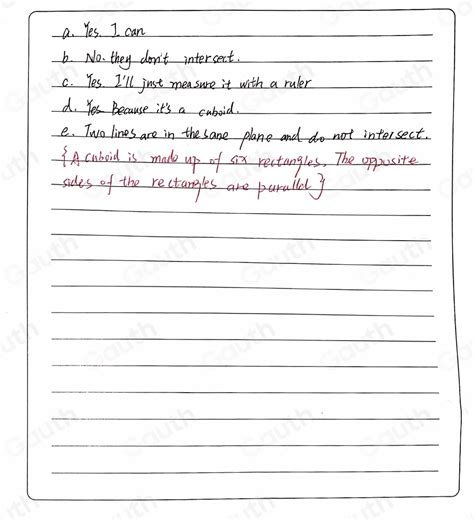 a. Yes. I can
b. No. they don't intersect.
c. Yes. I'll just measure it with a ruler
d. Yes Because it's a cuboid.
e. Two lines are in the sane plane and do not intersect.
{A cuboid is made up of six rectangles. The opposite
sides of the rectangles are parallel}
Gauth